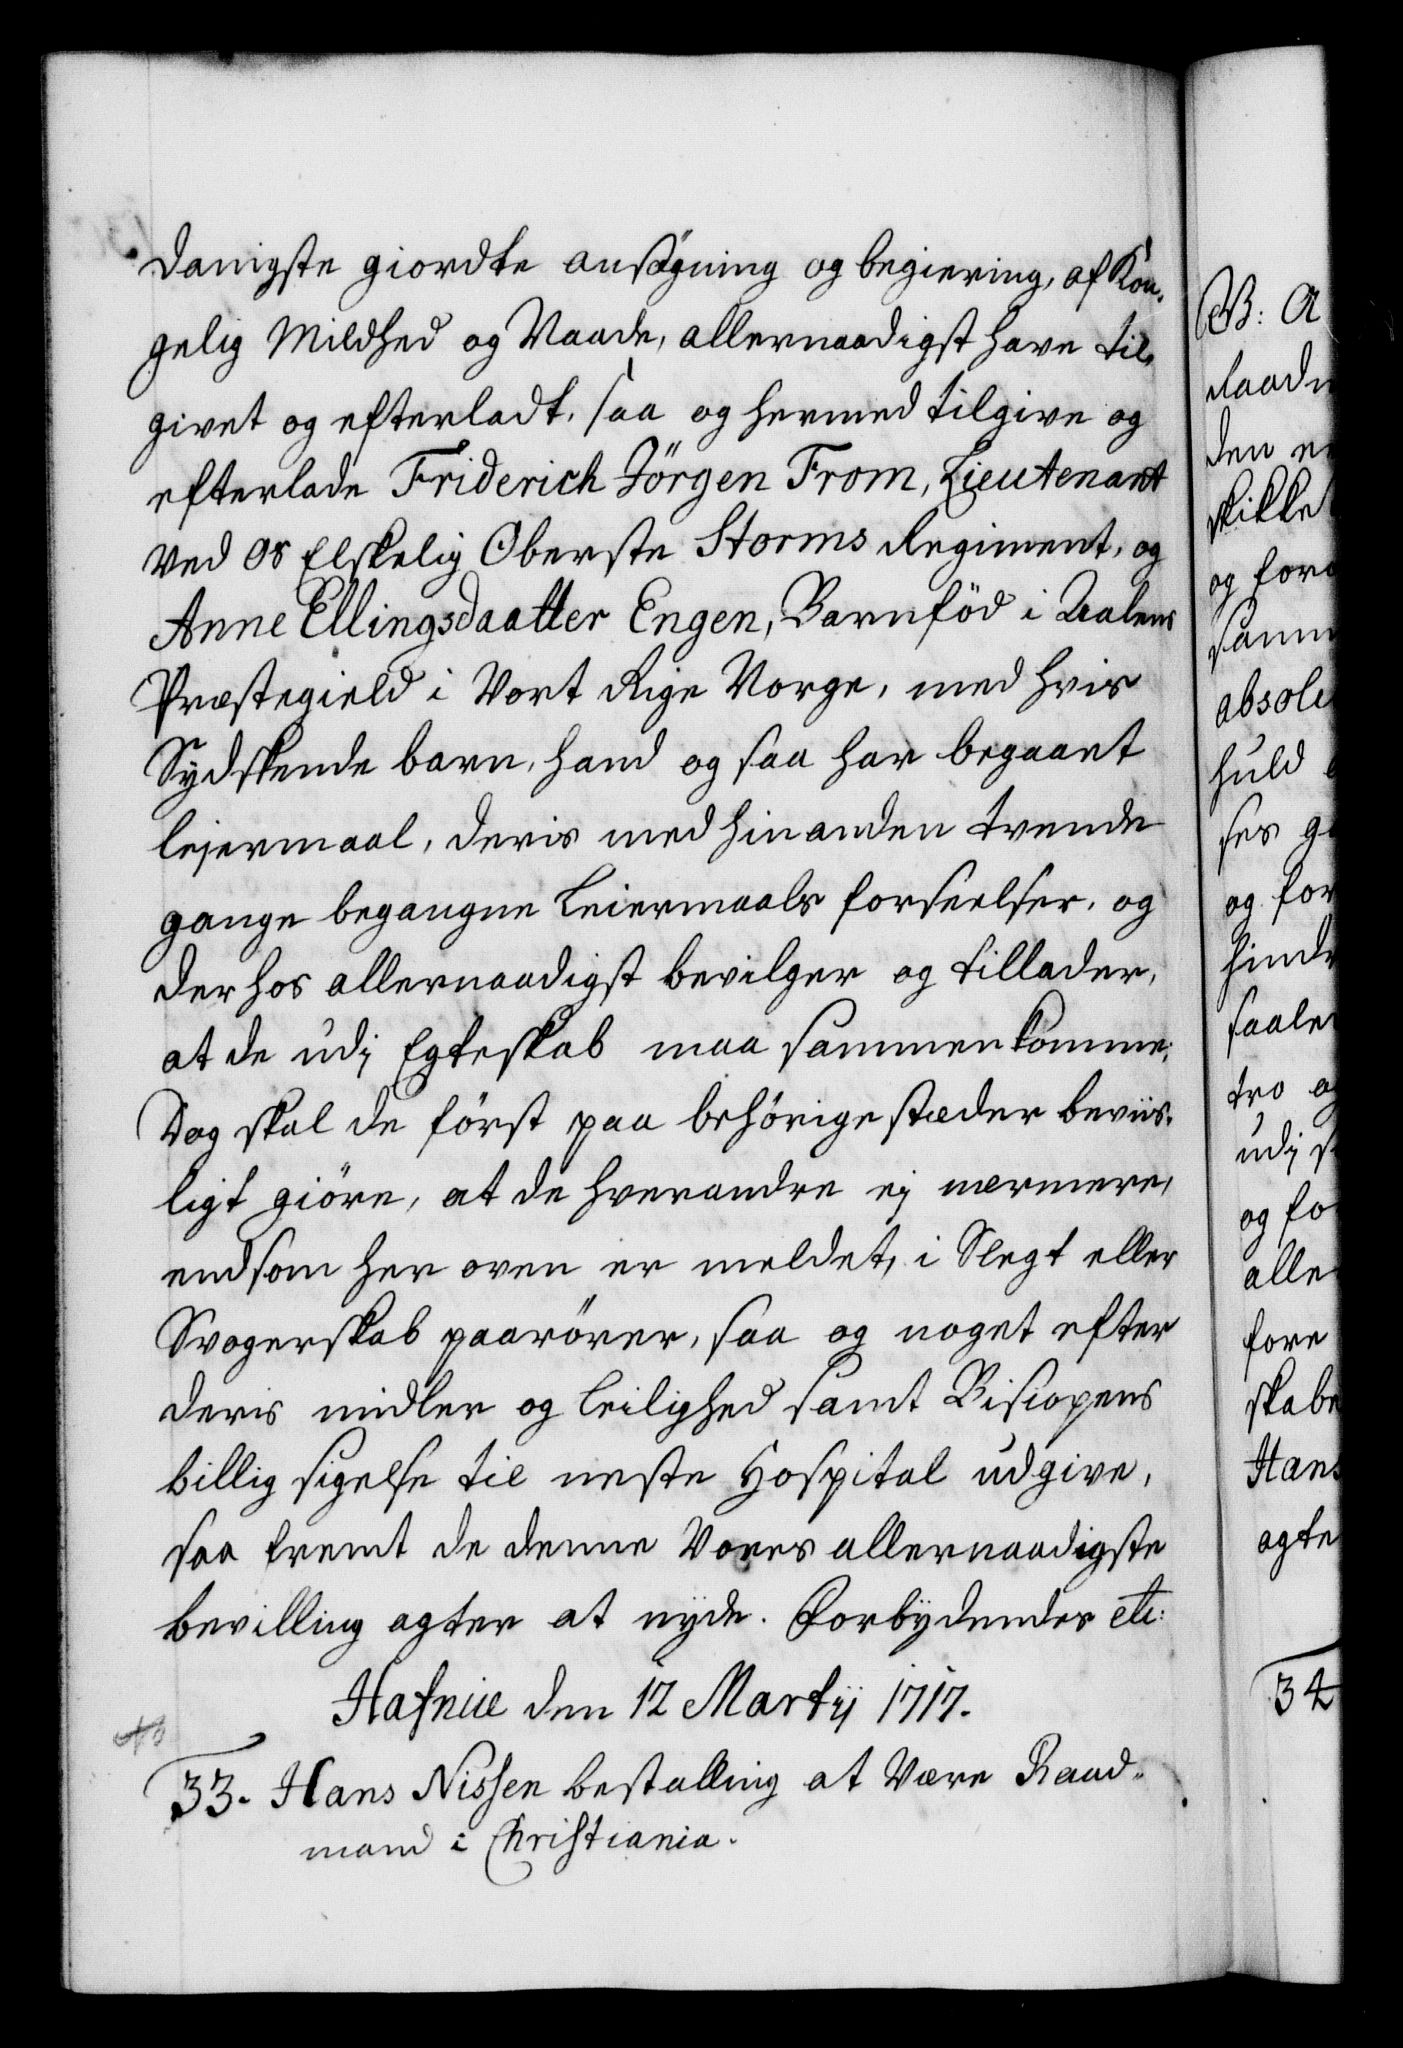 danigste giordte ansøgning og begiering, af Kon-
gelig Mildhed og Naade, allernaadigst have til-
givet og efterladt, saa og hermed tilgive og
efterlade Friderich Jörgen From, Lieutenant
ved os Elskelig Oberste Storms Regiment, og
Anne Ellingsdaatter Engen, Barnföd i Aalens
Præstegield i Vort Rige Norge, med hvis
Sydskende barn, hand og saa har begaaet
lejermaal, deris med hinanden trende
gange begangne Leiermaals forseelser, og
der hos allernaadigst bevilger og tillader,
at de udj Egteskab maa sammenkomme,
Dog skal de först paa behörige stæder beviis-
ligt giöre, at de hverandre ej nærmere,
end som her oven er meldet, i Slegt eller
Svogerskab paarörer, saa og noget efter
deris midler og Leilighed samt Biscopens
billig sigelse til neste Hospital udgive,
saa fremt de denne Vores allernaadigste
bevilling agter at nyde. Forbydendes etc:
Hafniæ den 12 Martij 1717.
No
33. Hans Nissen bestalling at være Raad-
mand i Christiania.
B: A
Raadm
den
skikke
og for
samm
absol
huld
ses g
og for
hindr
saale
tro og
udj s
og fo
alle
fore
skabe
Hans
agte
34